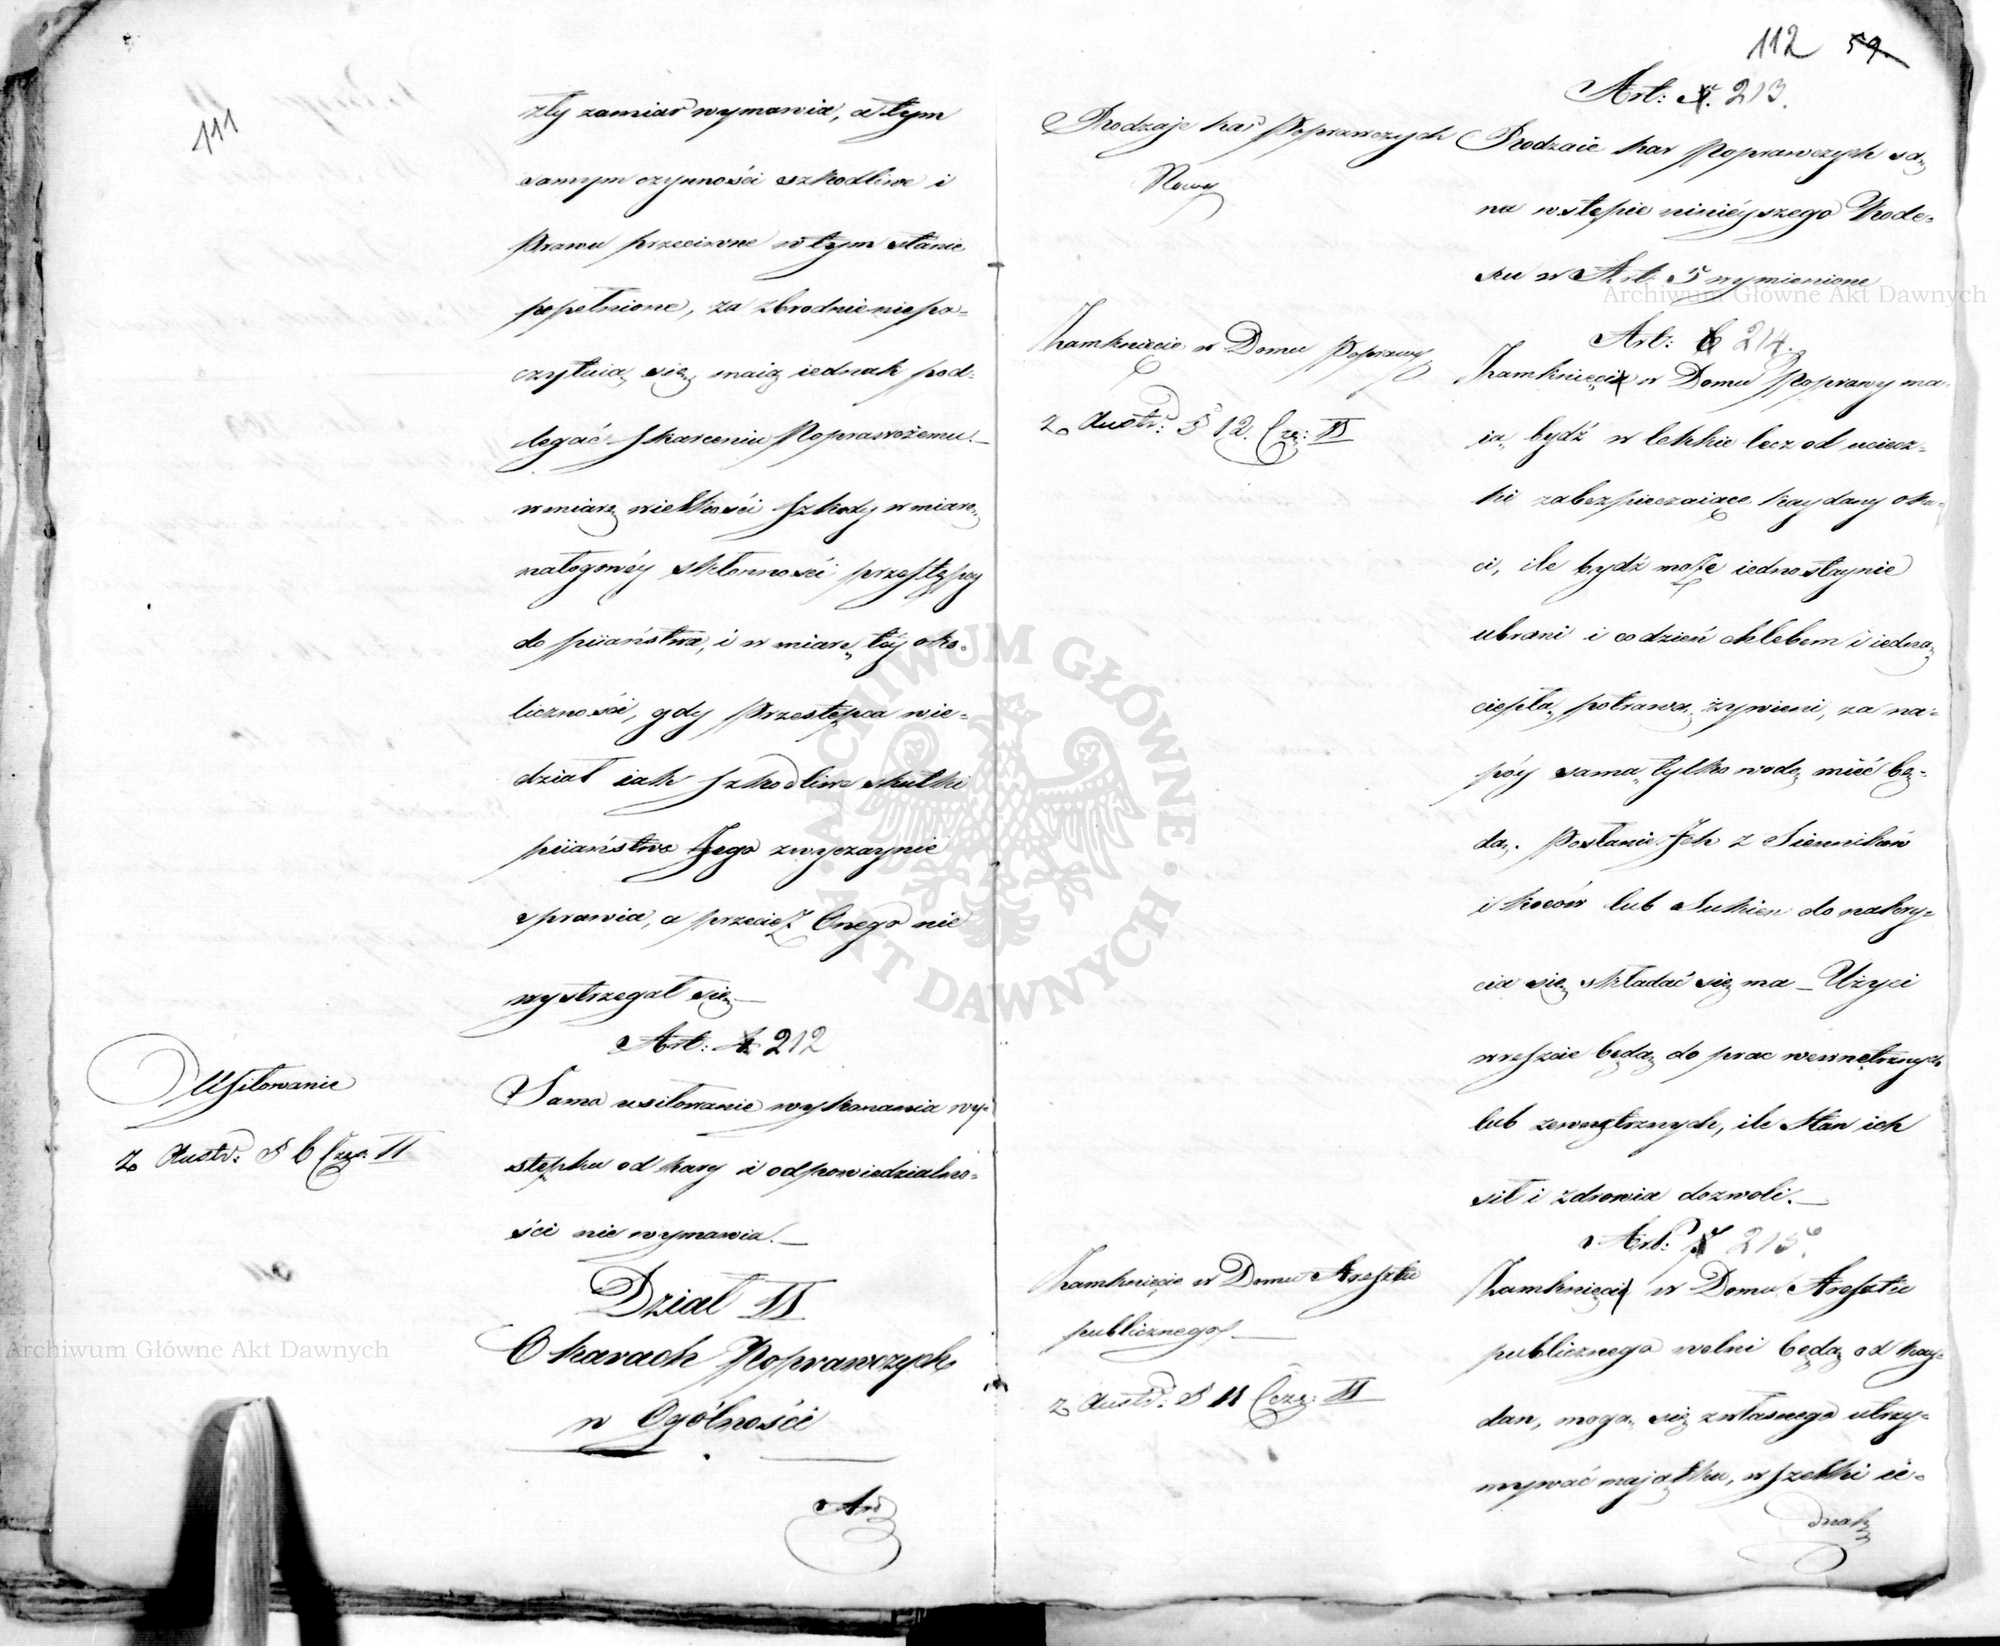 111
zły zamiar wymawia, a tym
samym czynności szkodliwe i
Prawu przeciwne w tym stanie
popełnione, za zbrodnie niepo=
czytuią się, maią iednak pod=
legać skarceniu Poprawczemu._
w miarę wielkości szkody w miarę
nałogowéy skłonności przestępcy
do pijaństwa, i w miarę téy oko=
liczności, gdy Przestępca wie=
dział iak szkodliwe skutki
pijaństwo Jego zwyczaynie
sprawia, a przecież Onego nie
wystrzegał się._
Art: 212
Usiłowanie
z Austr: § 6 Czę: II
Samo usiłowanie wykonania wy=
stępku od kary i odpowiedzialno=
ści nie wymawia._
Dział II
O karach Poprawczych
w Ogólności
Art
112 59
Art: 213.
Rodzaje kar Poprawczych
Nowy
Rodzaie kar Poprawczych są
na wstępie ninieyszego Kode=
xu w Art. 5 wymienione
Art: 6 214.
Zamknięcie w Domu Poprawy
z Austr: § 12. Czę: II
Zamknięci w Domu Poprawy ma=
ią bydź w lekkie lecz od uciecz=
ki zabezpieczaiące kaydany oku=
ci, ile bydź może iednostaynie
ubrani i co dzień chlebem i iedną
ciepłą potrawą żywieni, za na=
póy samą tylko wodę mieć bę=
dą. Posłanie Ich z Sienników
i koców lub Sukien do nakry=
cia się składać się ma _ Użyci
wreszcie będą do prac wewnętrznych
lub zewnętrznych, ile stan ich
sił i zdrowia dozwoli._
Art: 215.
Zamknięcie w Domu Aresztu
publicznego _
z Austr: § 11 Czę: II
Zamknięci w Domu Aresztu
publicznego wolni będą od kay=
dan, mogą się z własnego utrzy=
mywać majątku, wszelki ie=
dnak
Archiwum Główne Akt Dawnych
Archiwum Główne Akt Dawnych
ARCHIWUM GŁÓWNE · AKT DAWNYCH ·